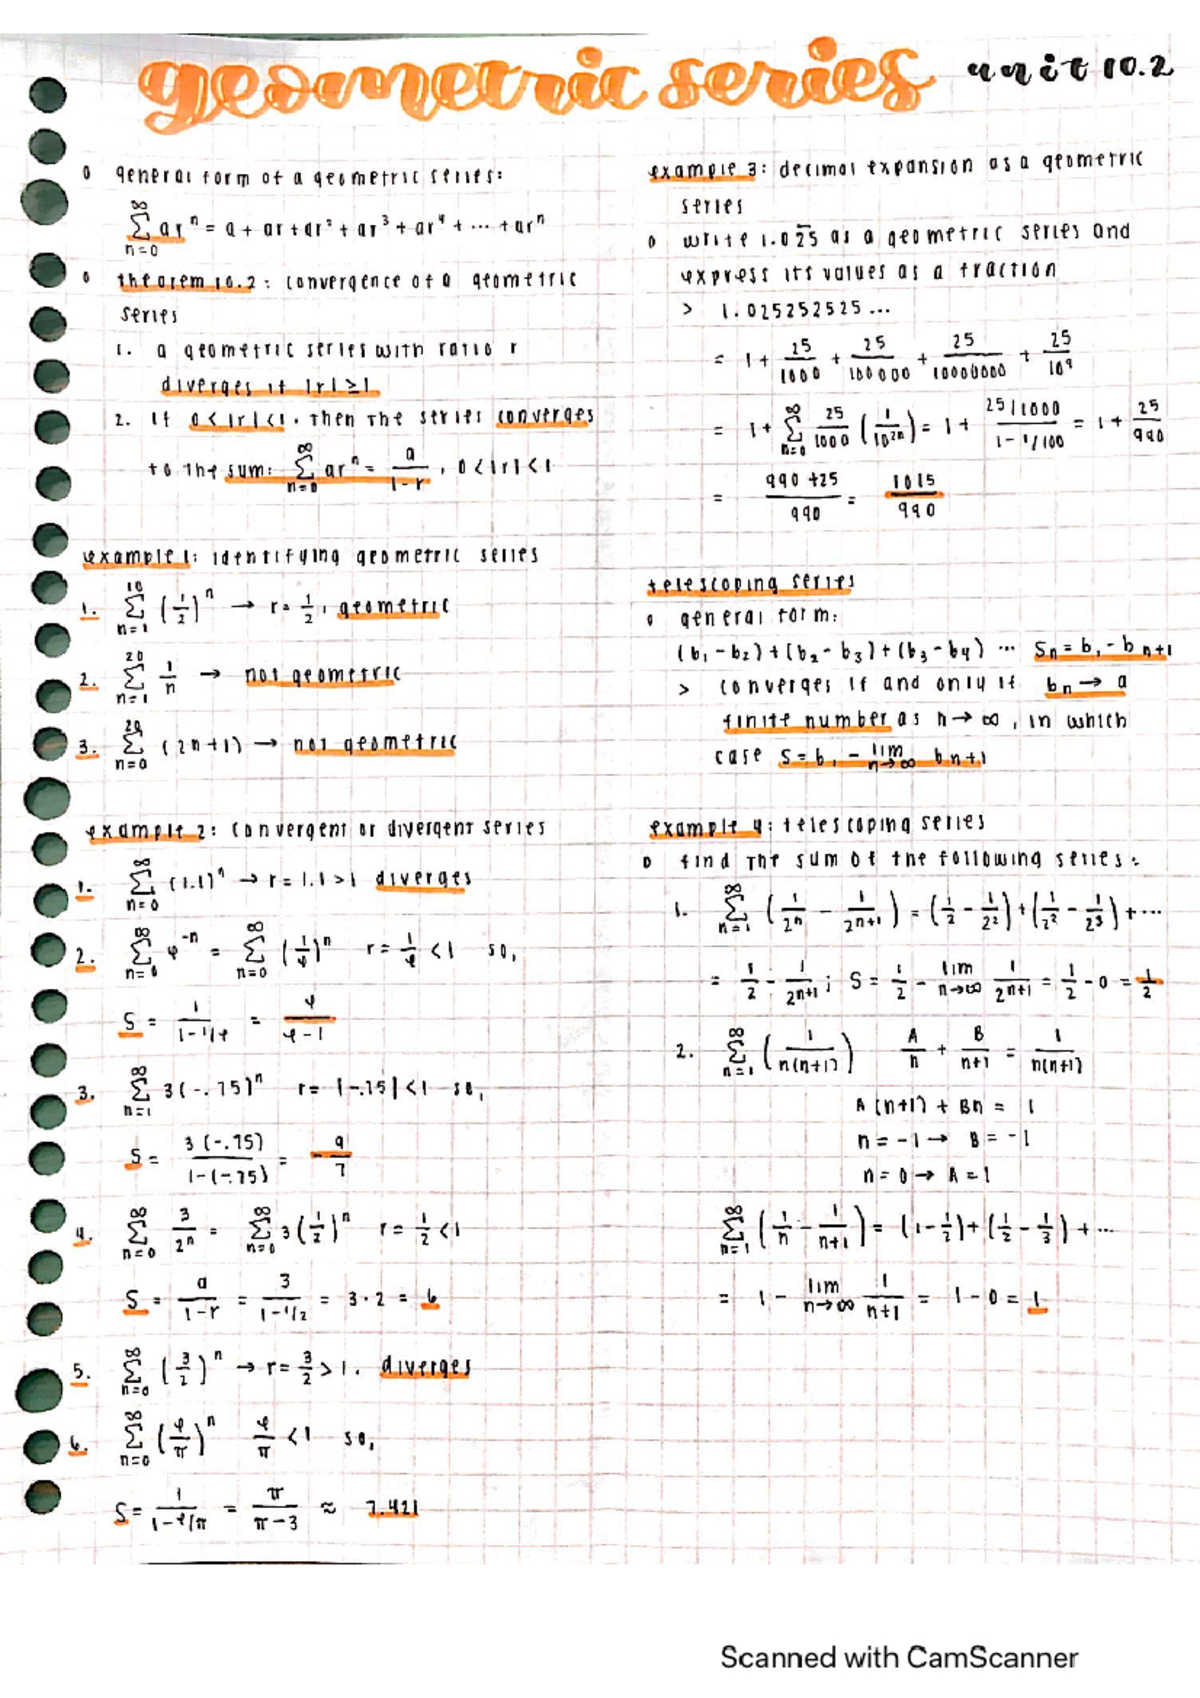 geometric series unit 10.2
o general form of a geometric series:
∞∑n=0 ar^n = a + ar + ar² + ar³ + ar⁴ + ... + ar^n
o theorem 10.2: convergence of a geometric
series
1. a geometric series with ratio r
diverges if |r| ≥ 1
2. If 0<|r|<1, then the series converges
to the sum: ∞∑n=0 ar^n = a/(1-r), 0<|r|<1
example 1: identifying geometric series
1. 10∑n=1 (1/2)^n → r = 1/2, geometric
2. 20∑n=1 1/n → not geometric
3. 20∑n=0 (2n+1) → not geometric
example 2: convergent or divergent series
1. ∞∑n=0 (1.1)^n → r = 1.1 > 1 diverges
2. ∞∑n=0 e^-n = ∞∑n=0 (1/e)^n r = 1/e < 1 so,
S = 1/(1-1/e) = e/(e-1)
3. ∞∑n=1 3(-.75)^n r = |-.75| < 1 so,
S = 3(-.75)/(1-(-.75)) = -9/7
4. ∞∑n=0 3/2^n = ∞∑n=0 3(1/2)^n r = 1/2 < 1
S = a/(1-r) = 3/(1-1/2) = 3·2 = 6
5. ∞∑n=0 (3/2)^n → r = 3/2 > 1. diverges
6. ∞∑n=0 (e/π)^n e/π < 1 so,
S = 1/(1-e/π) = π/(π-3) ≈ 7.421
example 3: decimal expansion as a geometric
series
o write 1.025 as a geometric series and
express its values as a fraction
> 1.025252525...
= 1 + 25/1000 + 25/100000 + 25/10000000 + 25/10⁹
= 1 + ∞∑n=0 25/1000 (1/10^2n) = 1 + (25/1000)/(1-1/100) = 1 + 25/990
= (990+25)/990 = 1015/990
telescoping series
o general form:
(b₁-b₂)+(b₂-b₃)+(b₃-b₄) ... Sn = b₁-b n+1
> converges if and only if bn → a
finite number as n→∞, in which
case S = b₁ - lim n→∞ bn+1
example 4: telescoping series
o find the sum of the following series:
1. ∞∑n=1 (1/2^n - 1/2^n+1) = (1/2 - 1/2²)+(1/2² - 1/2³)+...
= 1/2 - 1/2^n+1; S = 1/2 - lim n→∞ 1/2^n+1 = 1/2 - 0 = 1/2
2. ∞∑n=1 (1/n(n+1)) A/n + B/n+1 = 1/n(n+1)
A(n+1) + Bn = 1
n = -1 → B = -1
n = 0 → A = 1
∞∑n=1 (1/n - 1/n+1) = (1-1/2)+(1/2-1/3)+...
= 1 - lim n→∞ 1/n+1 = 1-0 = 1
Scanned with CamScanner